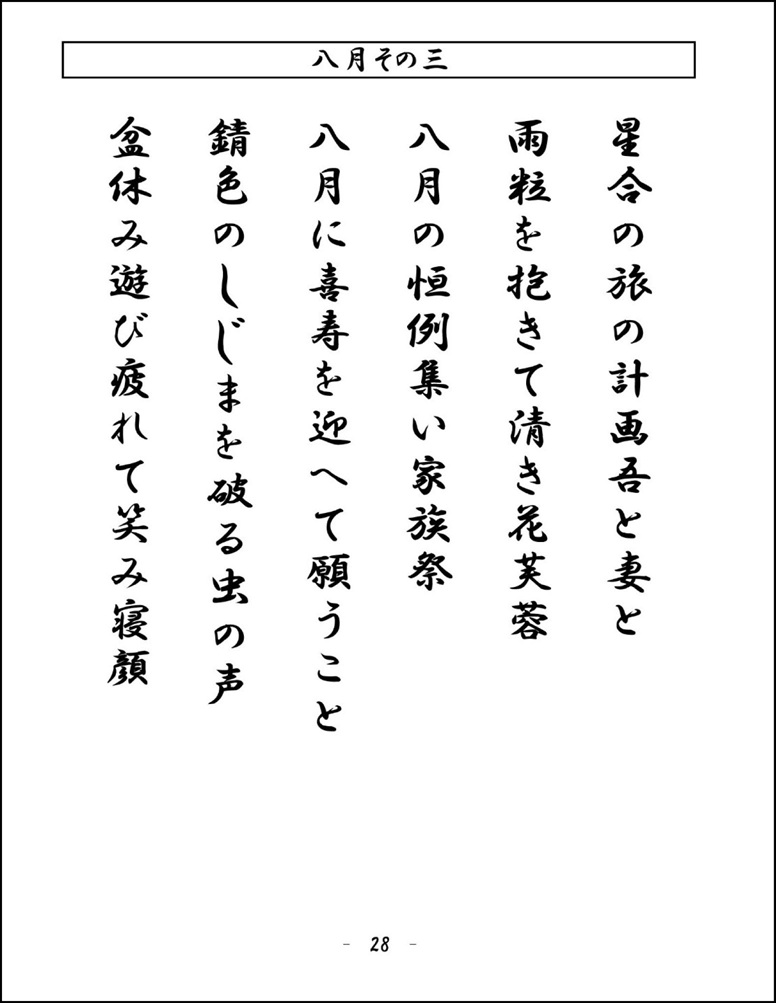 八月その三
星合の旅の計画吾と妻と
雨粒を抱きて清き花芙蓉
八月の恒例集い家族祭
八月に喜寿を迎へて願うこと
錆色のしじまを破る虫の声
盆休み遊び疲れて笑み寝顔
- 28 -